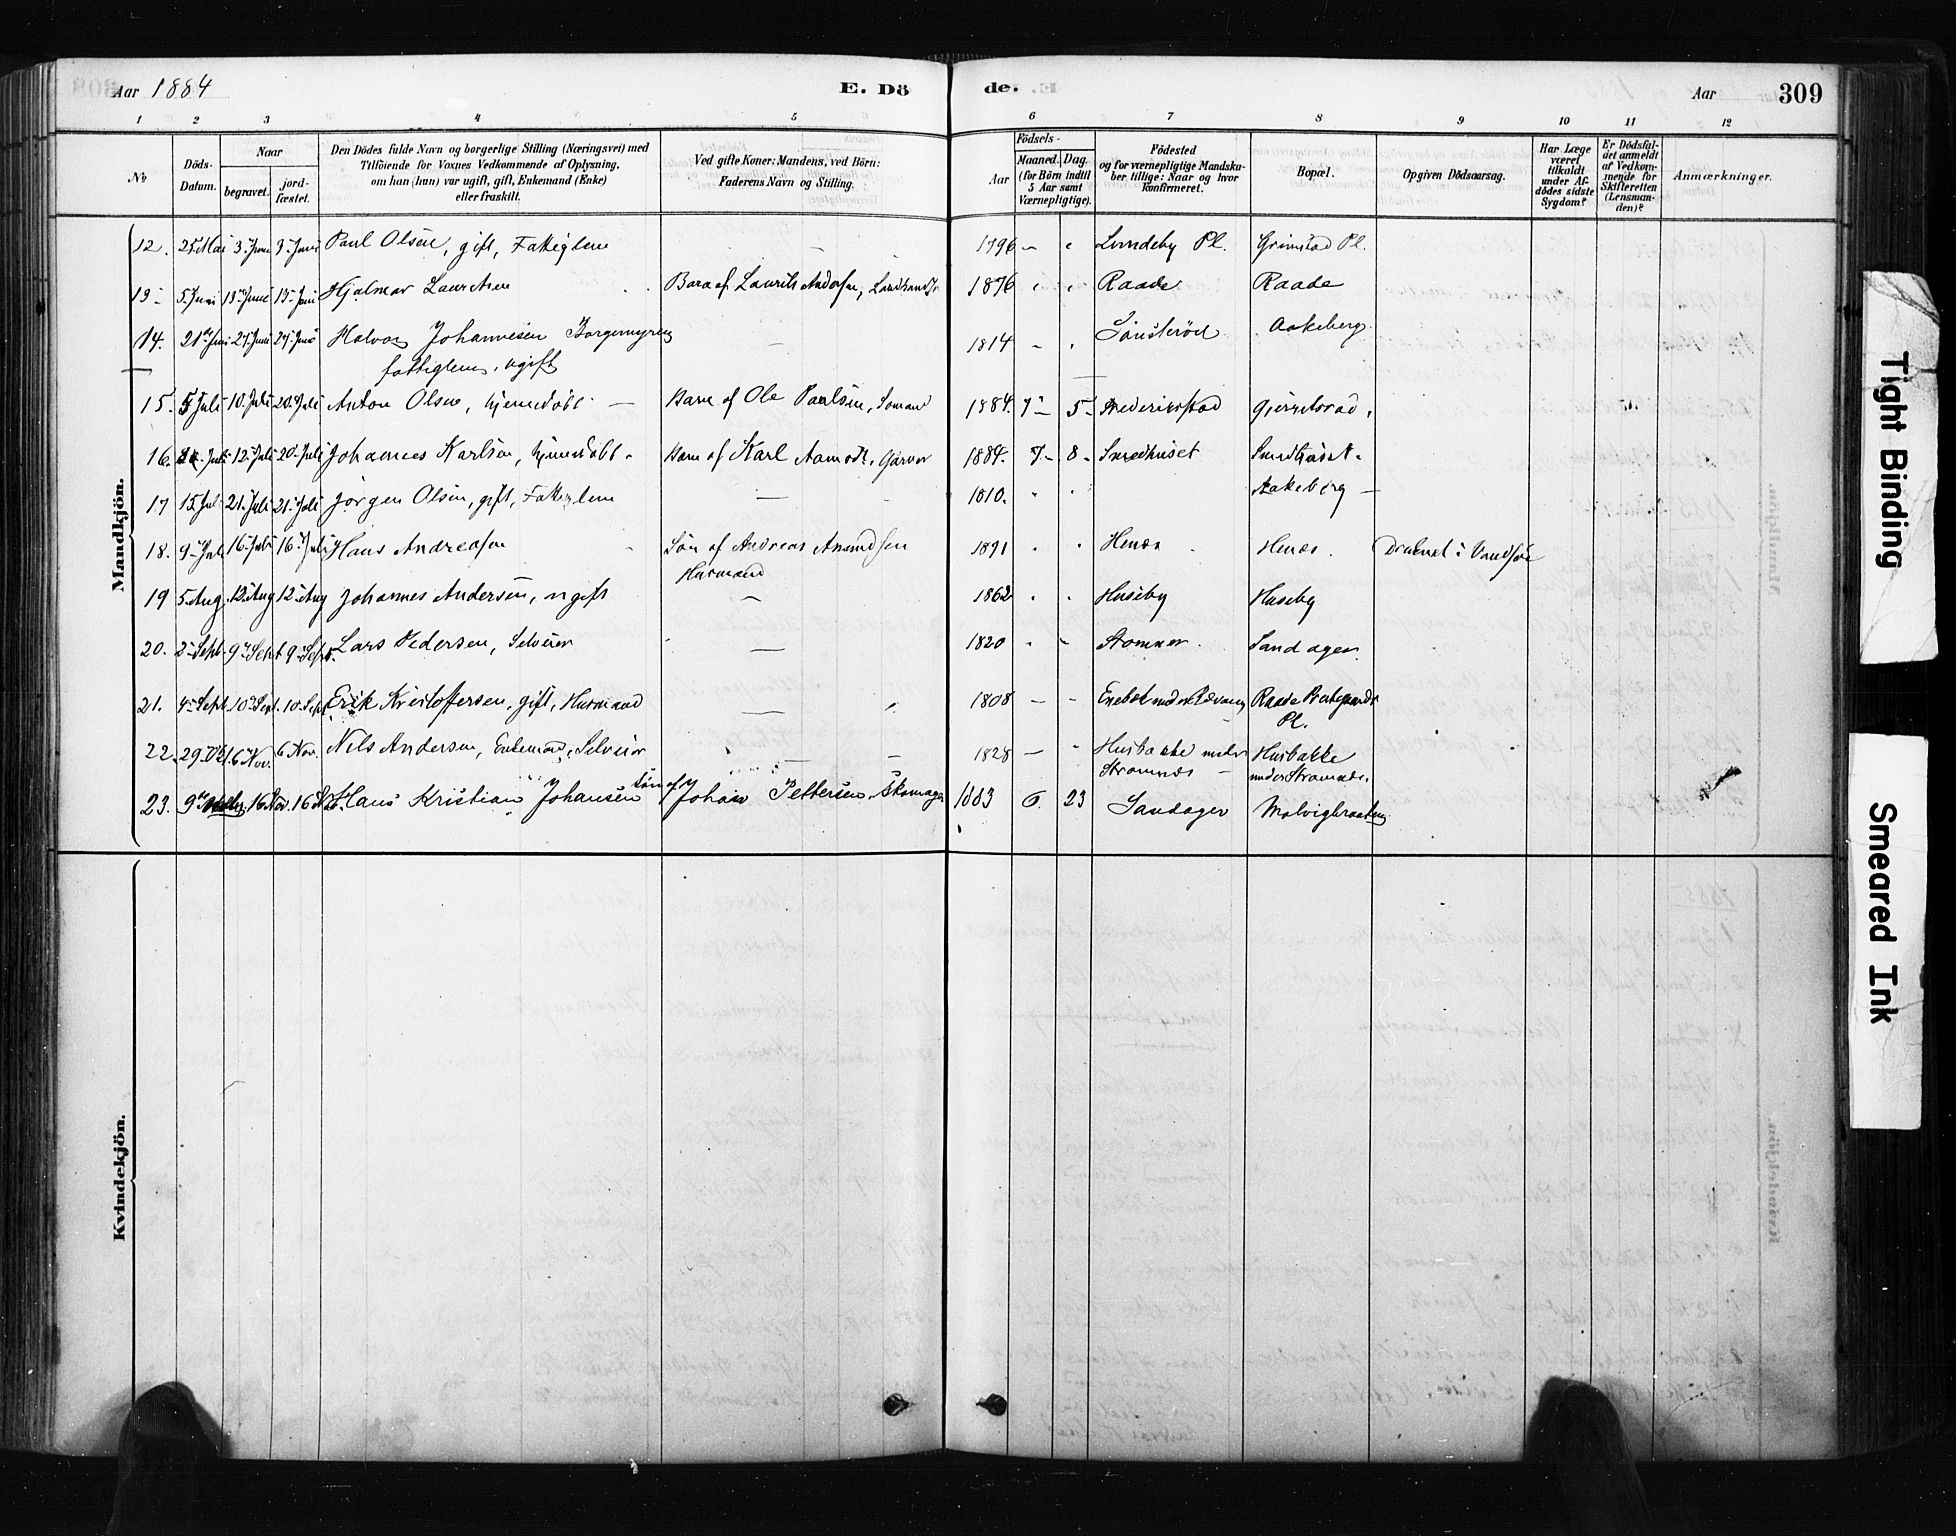 Aar 1884
E. Dö
de.
Aar
309
1 2 3 4 5 6 7 8 9 10 11 12
No
Döds-Datum.
Naar
begravet.
jord-fæstet.
Den Dödes fulde Navn og borgerlige Stilling (Næringsvei) med
Tilföiende for Voxnes Vedkommende af Oplysning,
om han (hun) var ugift, gift, Enkemand (Enke)
eller fraskilt.
Ved gifte Koner: Mandens, ved Börn:
Faderens Navn og Stilling.
Födsels-
Aar
Maaned. Dag.
(for Börn indtil
5 Aar samt
Værnepligtige).
Födested
og for værnepligtige Mandska-
ber tillige: Naar og hvor
konfirmeret.
Bopæl.
Opgiven Dödsaarsag.
Har Læge
været
tilkaldt
under Af-
dödes sidste
Sygdom?
Er Dödsfal-
det anmeldt
af Vedkom-
mende for
Skifteretten
(Lensman-
den)?
Anmærkninger.
Mandkjön.
12. 25. Mai 3. Juni 3. Juni Paul Olsen, gift, Fattiglem — 1796 — Lundeby Pl. Grimstad Pl.
13 5. Juni 13. Juni 13. Juni Hjalmar Lauritsen Barn af Laurits Andersen, 1876 Raade Raade
14. 21. Juni 29. Juni 29. Juni Halvor Johannesen Borgemyren — 1814 Aakeberg
fattiglem, ugift
15. 5 Juli 10. Juli 20. Juli Anton Olsen, hjemedöbt — Barn af Ole Paulsen, Sömand 1884. 7 5 Frederikstad
16. 12. Juli 20. Juli Johannes Karlsen, hjemedöbt Barn af Karl Aamodt, Garver 1884. 7 8 Smedhuset Smedhuset.
17 15. Juli 21. Juli 21. Juli Jörgen Olsen, gift, Fattiglem — 1810. Aakeberg —
18. 9. Juli 16. Juli 16. Juli Hans Andreasen Sön af Andreas Amundsen 1891 Henæs Henæs. Druknet i Vandsjö
Husmand
19 5. Aug. 12. Aug 12. Aug Johannes Andersen, ugift — 1862 Huseby Huseby
20. 2. Sept. 9. Sept 9. Sept. Lars Pedersen, Selveier — 1820 Stomner. Sandager.
21. 4. Sept. 10. Sept. 10. Sept. Erik Kristoffersen, gift, Husmand — 1808 — Raade Præstegaards
Pl.
22. 29. Okt. 6 Nov. 6 Nov. Nils Andersen, Enkemand, Selveier — 1828 — Husbakke under Husbakke
Stromnæs — under Stromnæs.
23. 9. 16 Nov. 16 Nov. Hans Kristian Johansen Sön af Johan Pettersen, Skomager 1883 6. 23 Sandager Molvigbraaten
Kvindekjön.
Tight Binding
Smeared Ink